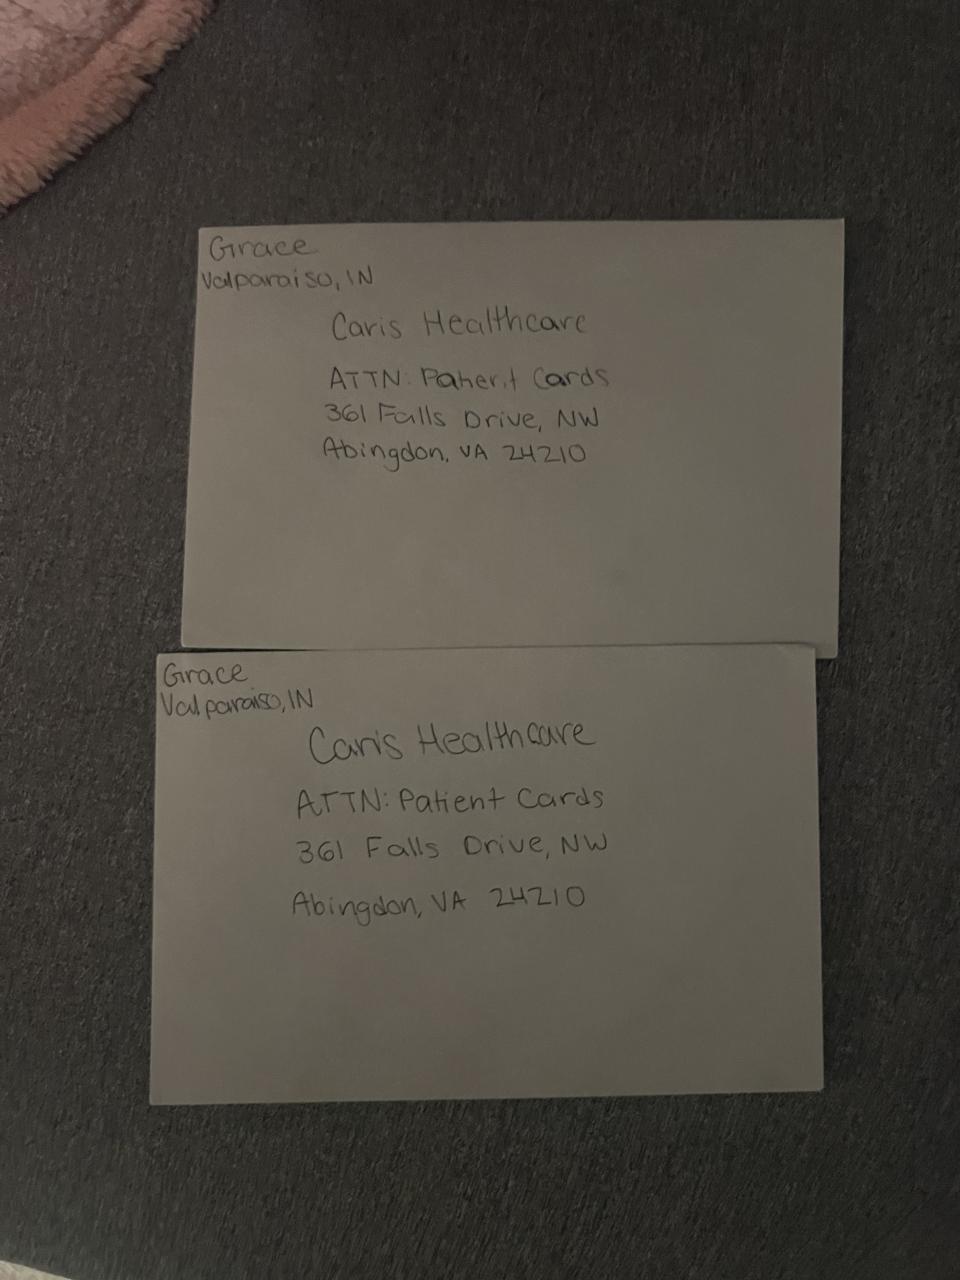 Grace
Valparaiso, IN
Caris Healthcare
ATTN: Patient Cards
361 Falls Drive, NW
Abingdon, VA 24210
Grace
Valparaiso, IN
Caris Healthcare
ATTN: Patient Cards
361 Falls Drive, NW
Abingdon, VA 24210